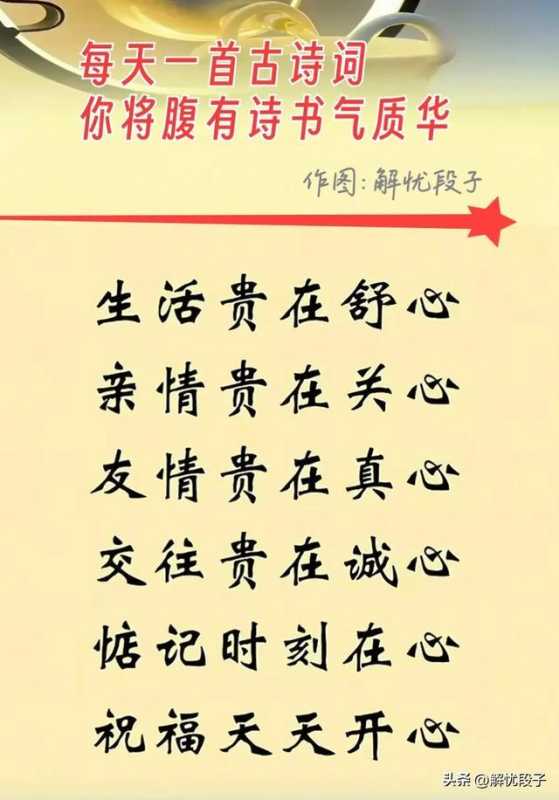 每天一首古诗词
你将腹有诗书气质华
作图:解忧段子
生活贵在舒心
亲情贵在关心
友情贵在真心
交往贵在诚心
惦记时刻在心
祝福天天开心
头条 @解忧段子